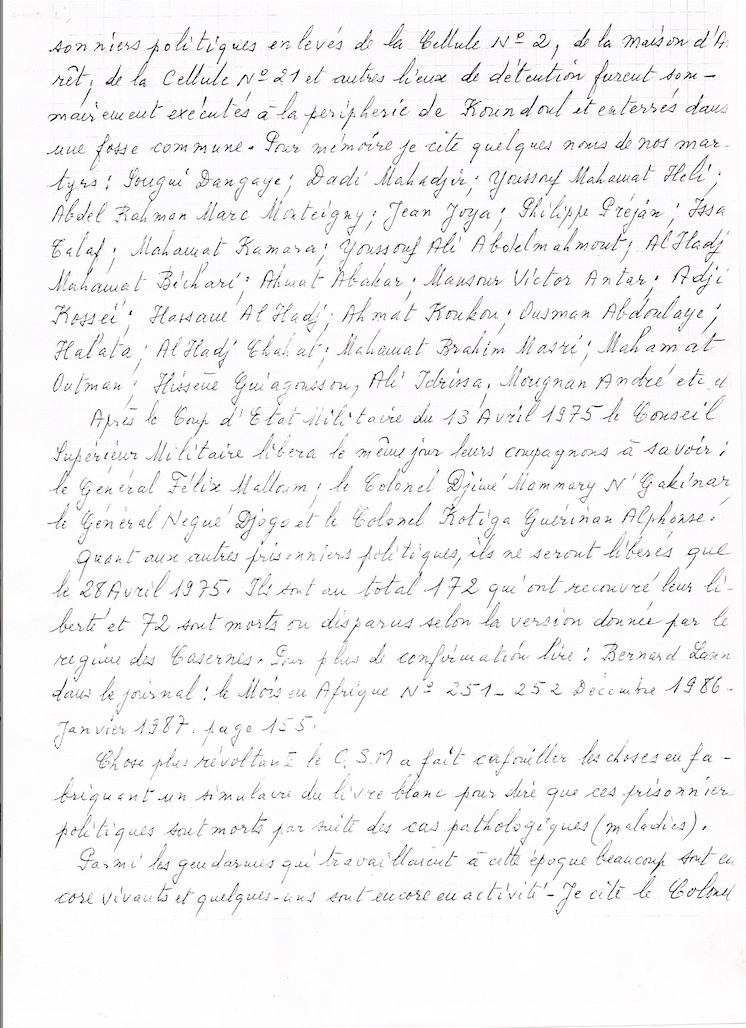 sonniers politiques enlevés de la Cellule Nº 2, de la maison d'A
rêt, de la Cellule Nº 21 et autres lieux de détention furent som-
mairement exécutés à la peripherie de Koundoul et enterrés dans
une fosse commune. Pour mémoire je cite quelques noms de nos mar-
tyrs : Sougui Dangaye ; Dadi Mahadjir ; Youssouf Mahamat Heli ;
Abdel Rahman Marc Monteigny ; Jean Joya ; Philippe Préjan ; Issa
Talaf ; Mahamat Kamara ; Youssouf Ali Abdelmahmout ; Al Hadj
Mahamat Bichari ; Ahmat Abakar ; Mansour Victor Antar ; Adji
Kosseï ; Hassane Al Hadj ; Ahmat Koukou ; Ousman Abdoulaye ;
Halata ; Al Hadj Chahat ; Mahamat Brahim Masri ; Mahamat
Outman ; Hissène Guiagousson, Ali Idrissa, Mougnan André etc.
Après le Coup d'Etat Militaire du 13 Avril 1975 le Conseil
Supérieur Militaire libera le même jour leurs compagnons à savoir :
le Général Félix Malloum ; le Colonel Djimé Mammary N'Gakinar,
le Général Negué Djogo et le Colonel Kotiga Guérinan Alphonse.
Quant aux autres prisonniers politiques, ils ne seront libérés que
le 28 Avril 1975. Ils sont au total 172 qui ont recouvré leur li-
berté et 72 sont morts ou disparus selon la version donnée par le
regime des Casernes. Pour plus de confirmation lire : Bernard Lann
dans le journal : le Mois en Afrique Nº 251-252 Décembre 1986-
Janvier 1987. page 155.
Chose plus révoltant le C.S.M a fait cafouiller les choses en fa-
briquant un simulacre du livre blanc pour dire que ces prisonnier
politiques sont morts par suite des cas pathologiques (maladies).
Parmi les gendarmes qui travaillaient à cette époque beaucoup sont en
core vivants et quelques-uns sont encore en activité - Je cite le Colonel